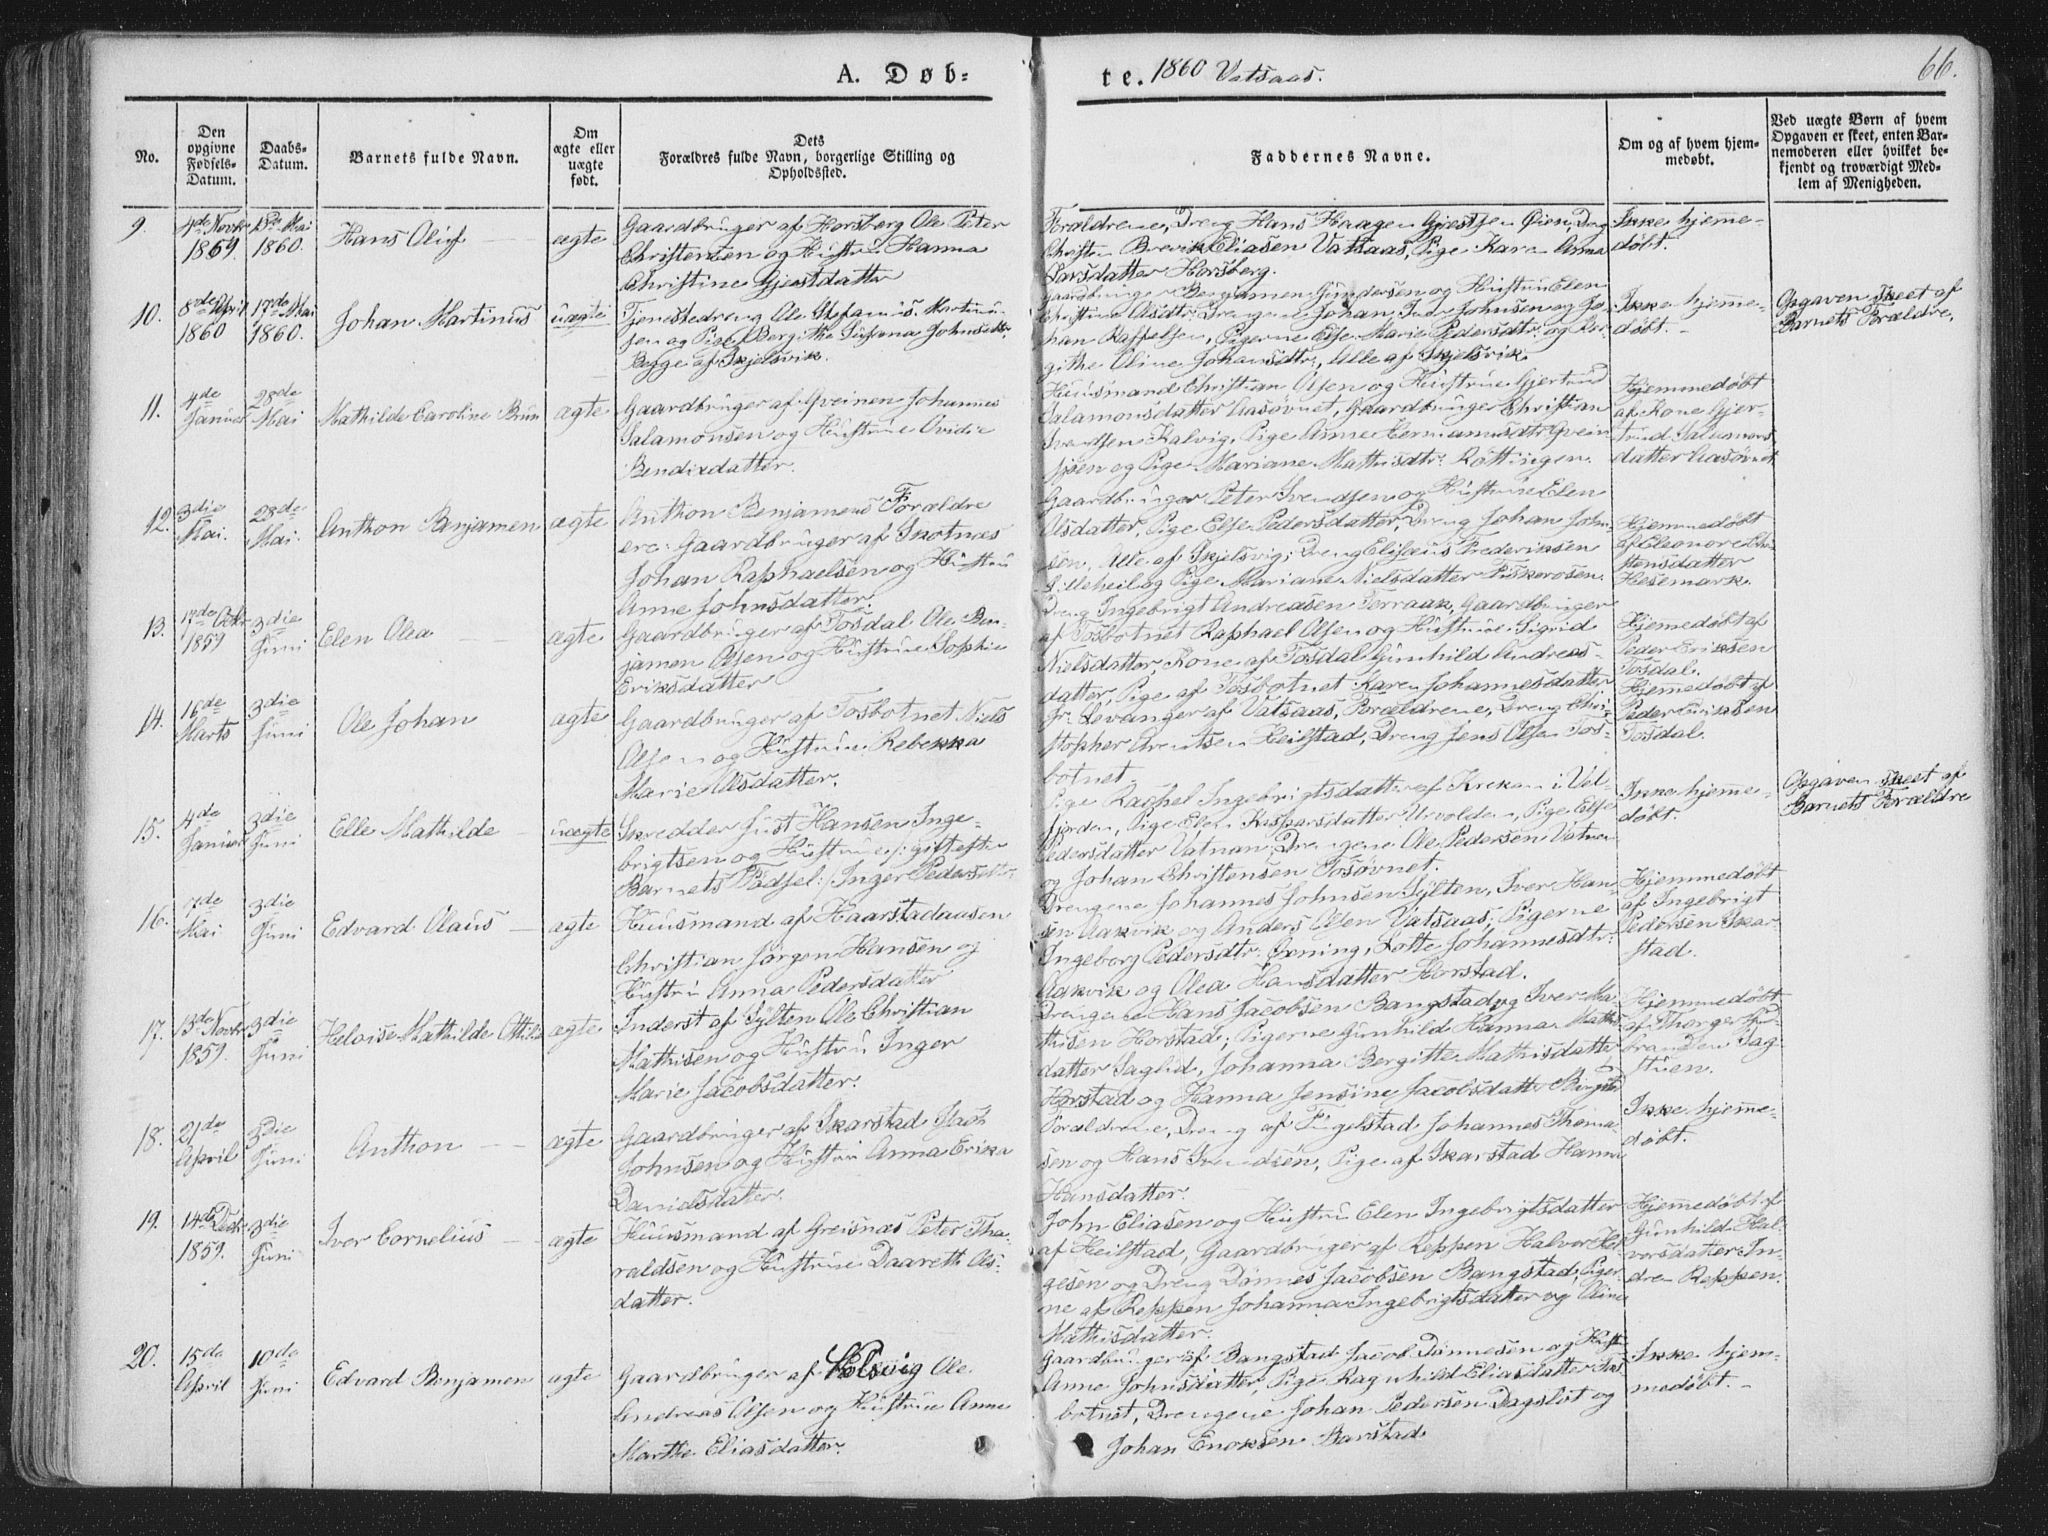 A. Døb-
te. 1860 Vatsaas.
66.
No.
Den opgivne Fødsels-Datum.
Daabs-Datum.
Barnets fulde Navn.
Om ægte eller uægte født.
Dets Forældres fulde Navn, borgerlige Stilling og Opholdssted.
Faddernes Navne.
Om og af hvem hjemmedøbt.
Ved uægte Børn af hvem Opgaven er skeet, enten Barnemoderen eller hvilket bekjendt og troværdigt Medlem af Menigheden.
9.
4de Novbr
1859
13de Mai
1860.
Hans Oluf
ægte
Gaardbruger af Horsberg Ole Peter
Christensen og Hustru Hanna
Christine Gjestdatter
Forældrene, Dreng Hans Haagen Gjestsen Øien, Dreng
Brevik Eliasen Vatsaas, Pige Karen Anna
Larsdatter Horsberg.
Ikke hjemme-
døbt.
10.
8de April
1860
17de Mai
1860.
Johan Martinus
uægte
Tjenestedreng Ole Stefanus Martinu-
sen og Pige Bergithe Susana Johnsdttr.
Begge af Skjelsvik.
Gaardbruger Benjamen Gundersen og Hustru Elen
Christine Olsdtr; Drengene Johan, Johnsen og Jo-
han Raffelsen, Pigerne Else Marie Pedersdtr. og Ber-
githe Oline Johansdtr, Alle af Skjelsvik.
Ikke hjemme-
døbt.-
Opgaven skeet af
Barnets Forældre,
11.
4de
Januar
28de
Mai
Mathilde Caroline Brun
ægte
Gaardbruger af Kveinen Johannes
Salamonsen og Hustrue Ovidie
Bendixdatter.
Huusmand Christian Olsen og Hustrue Gjertrud
Salamonsdatter Aasøvnet, Gaardbruger Christian
Svendsen Kalvig, Pige Anne Hermansdtr. Kvein-
sjøen og Pige Mariane Mathisdtr: Røttingen.
Hjemmedøbt
af Kone Gjer-
trud Salamons
datter Aasøvnet
12.
3die
Mai.
28de
Mai.
Anthon Benjamen
ægte
Anthon Benjamens Forældre
ere: Gaardbruger af Skotnæs
Johan Raphaelsen og Hustru
Anne Johnsdatter.
Gaardbruger Peter Svendsen og Hustrue Elen
Olsdatter, Pige Else Pedersdatter, Dreng Johan John-
sen, Alle af Skjelsvig; Dreng Elisæus Frederiksen
Lilleheil og Pige Mariane Nielsdatter Fiskerosen.
Hjemmedøbt
af Eleonore Chri-
stensdatter
Hesemark.
13.
17de Octbr
1859
3die
Juni
Elen Olea
ægte
Gaardbruger af Tosdal Ole Ben-
jamen Olsen og Hustrue Sophie
Eriksdatter
Dreng Ingebrigt Andreasen Terraak, Gaardbruger
af Tosbotnet Raphael Olsen og Hustrue Sigrid
Nielsdatter, Kone af Tosdal Gunhild Andreas-
datter, Pige af Tosbotnet Karen Johannesdatter
Hjemmedøbt af
Peder Eriksen
Tosdal.
14.
16de
Marts
3die
Juni
Ole Johan
ægte
Gaardbruger af Tosbotnet Niels
Olsen og Hustrue Rebekka
Marie Olsdatter.
Hr: Levanger af Vatsaas, Forældrene, Dreng Chri-
stopher Arentsen Heilstad, Dreng Jens Olsen Tos-
botnet.
Hjemmedøbt af
Peder Eriksen
Tosdal.
15.
4de
Januar
3die
Juni
Elle Mathilde
uægte
Skredder Just Hansen Inge-
brigtsen og Hustrue /: gift efter
Barnets Fødsel:/ Inger Pedersdtr.
Pige Rachel Ingebrigtsdatter af Kreken i Vel-
fjorden, Pige Elen Kasparsdatter Urvolden, Pige Else
Pedersdatter Vatnan, Drengene Ole Pedersen Vatnan
og Johan Christensen Tosøvnet.
Ikke hjemme-
døbt.
Opgaven skeet af
Barnets Forældre
16.
7de
Mai
3die
Juni
Edvard Olaus
ægte
Huusmand af Haarstadaasen
Christian Jørgen Hansen og
Hustru Anna Pedersdatter
Drengene Johannes Johnsen Sylten, Iver Han-
sen Aakvik og Anders Olsen Vatsaas; Pigerne
Ingeborg Pedersdtr: Oxning, Lotte Johannesdtr:
Aakvik og Olea Hansdatter Horstad.
Hjemmedøbt
af Ingebrigt
Pedersen Skar-
stad.
17.
13de Novbr
1859.
3die
Juni
Heloise Mathilde Ottilie
ægte
Inderst af Sylten Ole Christian
Mathisen og Hustru Inger
Marie Jacobsdatter.
Drengene Hans Jacobsen Bangstad og Iver Ma-
thisen Horstad; Pigerne Gunhild Hanna Mathis
datter Saglid, Johanna Bergitte Mathisdatter
Horstad og Hanna Jensine Jacobsdattr Bangstd
Hjemmedøbt
af Thorger Gul-
brandsen Sag-
stuen.
18.
21de
April
3die
Juni
Anthon
ægte
Gaardbruger af Skarstad
Johnsen og Hustru Anna Erika
Danielsdatter.
Forældrene, Dreng af Tingelstad Johannes Thoma-
sen og Hans Svendsen, Pige af Skarstad Hanna
Hansdatter.
Ikke hjemme-
døbt.
19.
14de Decbr
1859.
3die
Juni
Iver Cornelius
ægte
Huusmand af Greisnæs Peter Tha-
raldsen og Hustrue Daareth Ols-
datter.
John Eliasen og Hustru Elen Ingebrigtsdatter
af Heilstad, Gaardbruger af Reppen Halvor Hel-
gesen og Dreng Dønnes Jacobsen Bangstad, Piger-
ne af Reppen Johanna Ingebrigtsdatter og Aine
Mathisdatter.
Hjemmedøbt af
Gunhild Hal-
vorsdatter In-
dre Reppen.
20.
15de
April
10de
Juni
Edvard Benjamen
ægte
Gaardbruger af Holsvig Ole
Andreas Olsen og Hustrue Anne
Marthe Eliasdatter.
Gaardbruger af Bangstad Jacob Tønnesen og Hustr.
Anne Johnsdatter, Pige Ragnhild Eliasdatter Tos-
botnet, Drengene Johan Pedersen Dagslot og
Johan Enoksen Barstad
Ikke hjem-
medøbt.-